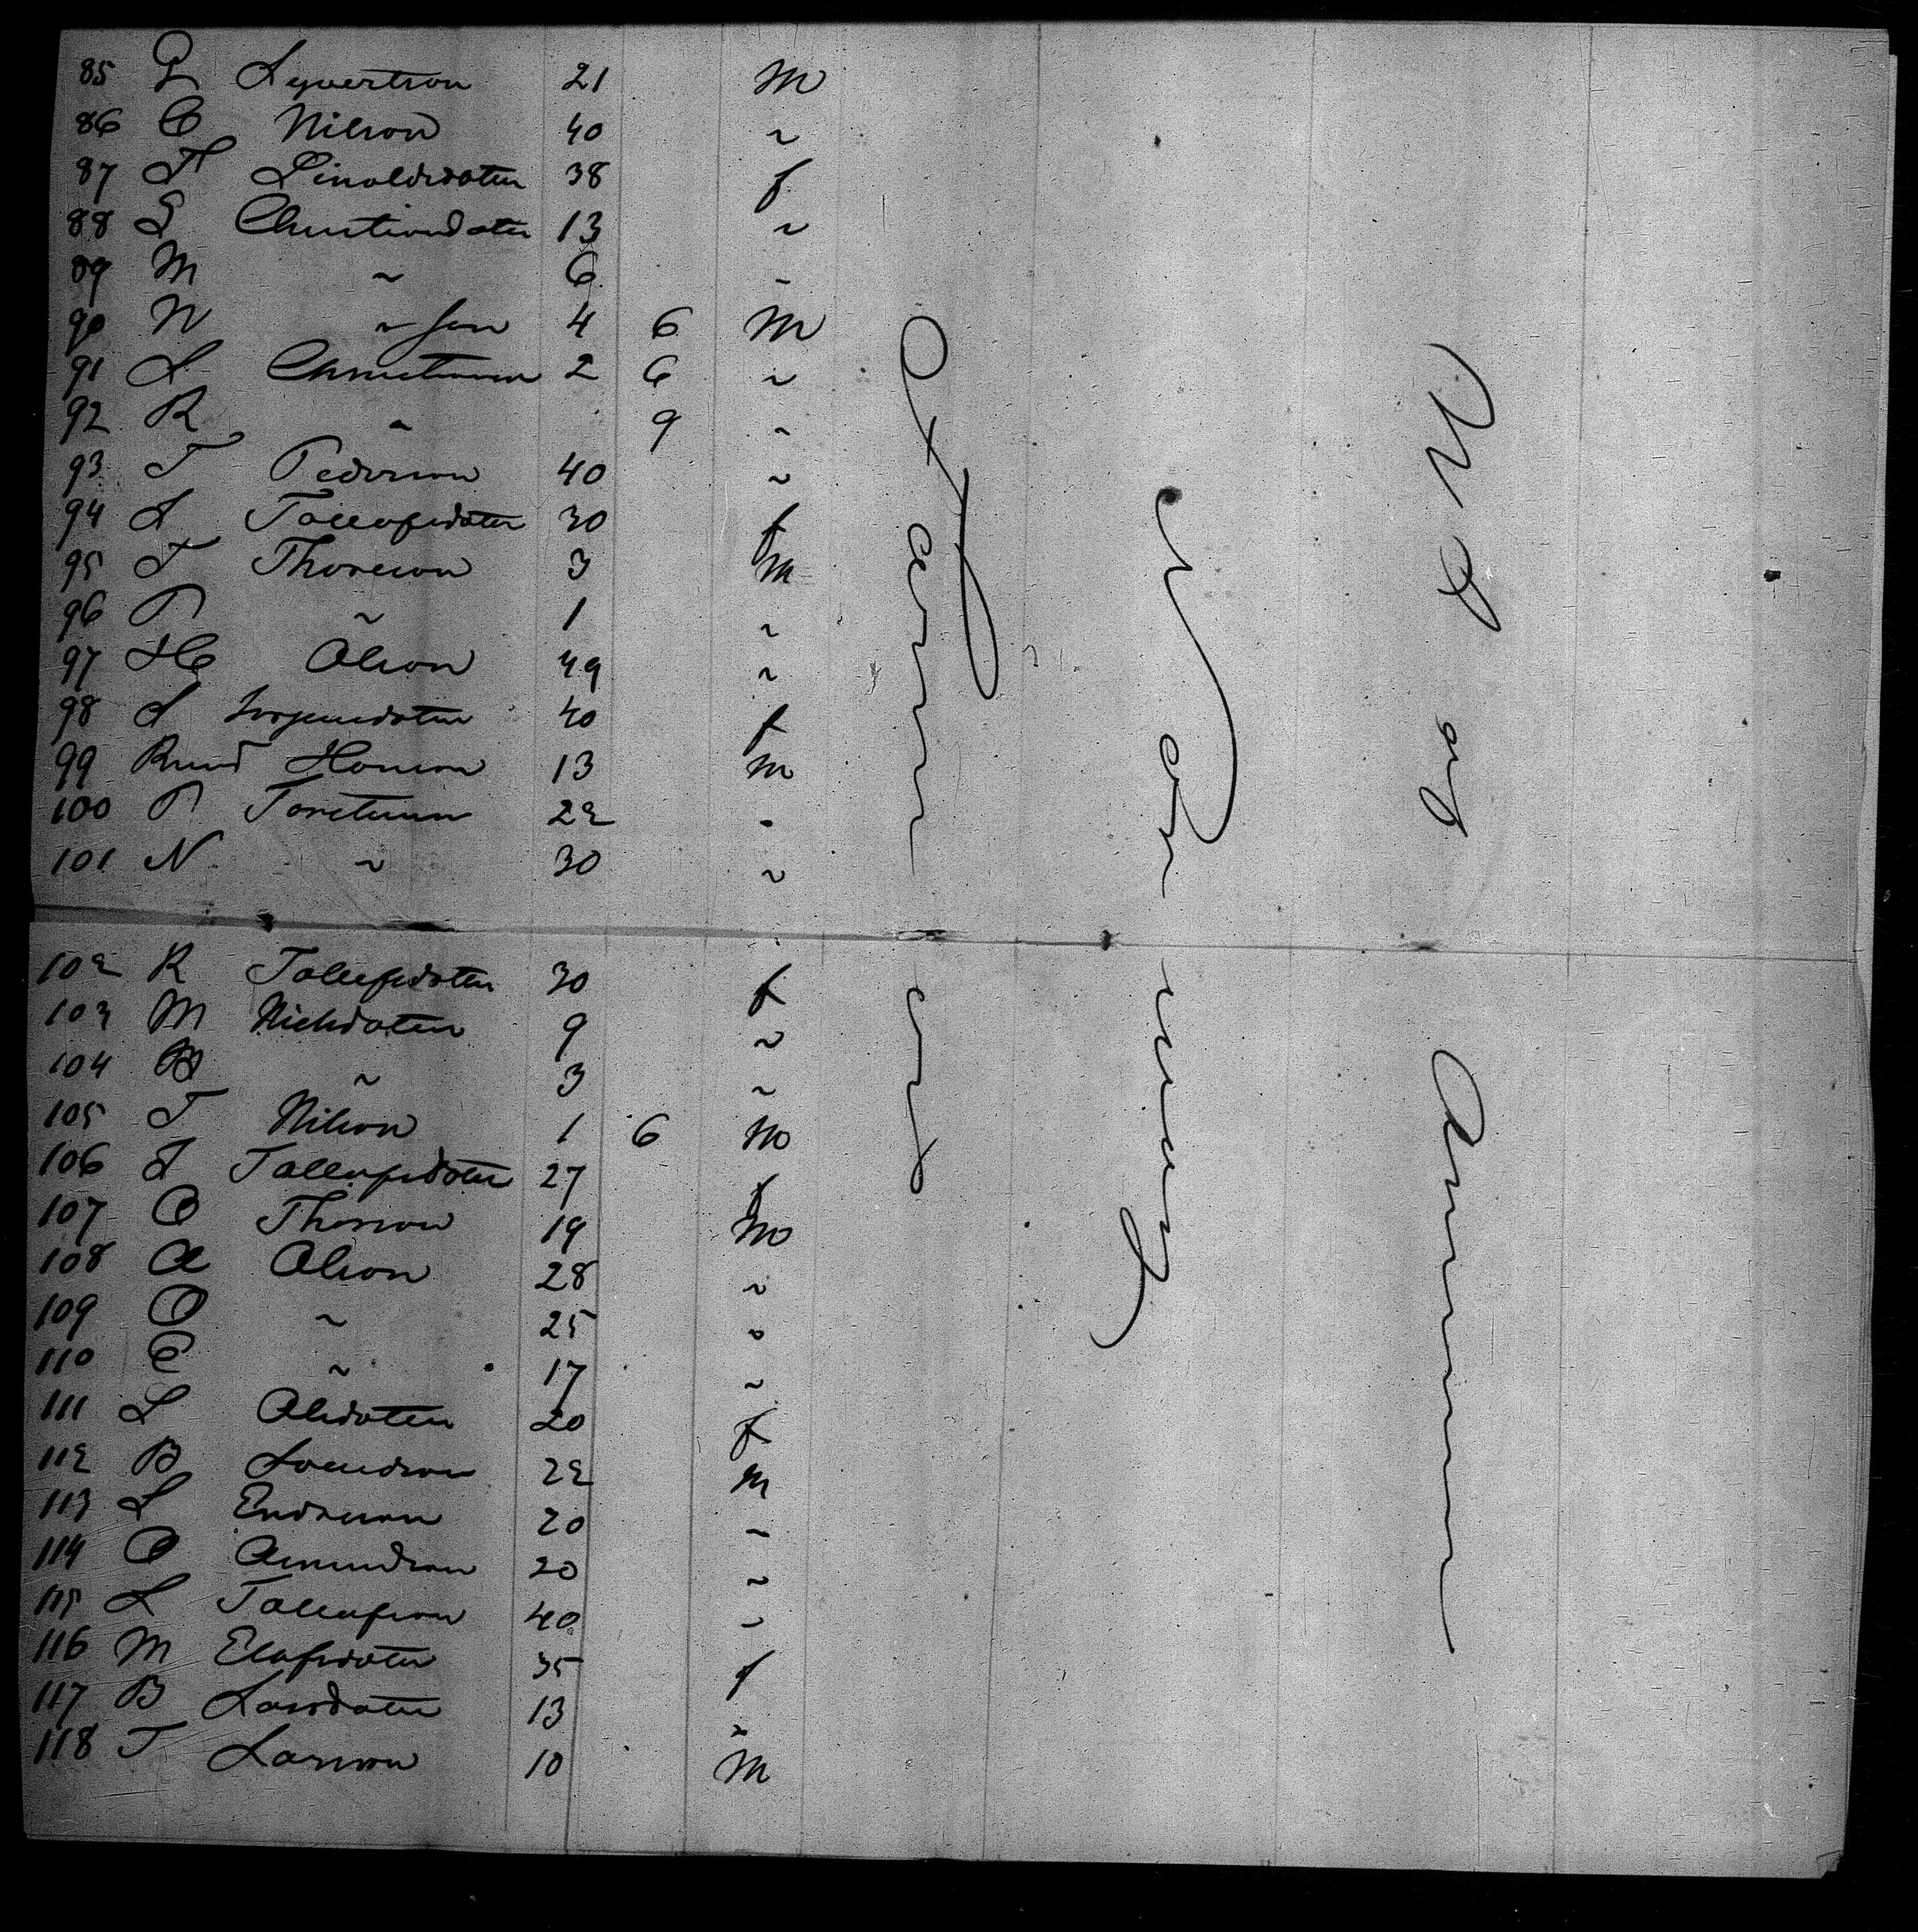 85 G Syvertson 21 m
86 C Nilson 40 ~
87 T 38 f
88 S Christiandater 13 ~
89 M ~ 6 ~
90 N ~ Sen 4 6 m
91 L Christiansen 2 6 ~
92 R ~ 9 ~
93 T Pederson 40 ~
94 S Tallafsdater 30 f
95 T Thoreson 3 m
96 P ~ 1 ~
97 H Olson 49 ~
98 S 40 f
99 Knud Hanson 13 m
100 P Torstensen 22 ~
101 N ~ 30 ~
102 R Tollefsdater 30 f
103 M Nielsdater 9 ~
104 B ~ 3 ~
105 T Nilson 1 6 m
106 S Tallafsdater 27 f
107 O Thorson 19 m
108 A Olson 28 ~
109 O ~ 25 ~
110 E ~ 17 ~
111 L Olsdater 20 f
112 B 22 m
113 L Enderson 20 ~
114 O Amundson 20 ~
115 L Tallafson 40 ~
116 M Elafsdater 35 f
117 B Larsdater 13 ~
118 T Larson 10 m
Farming
Norway
U S of America